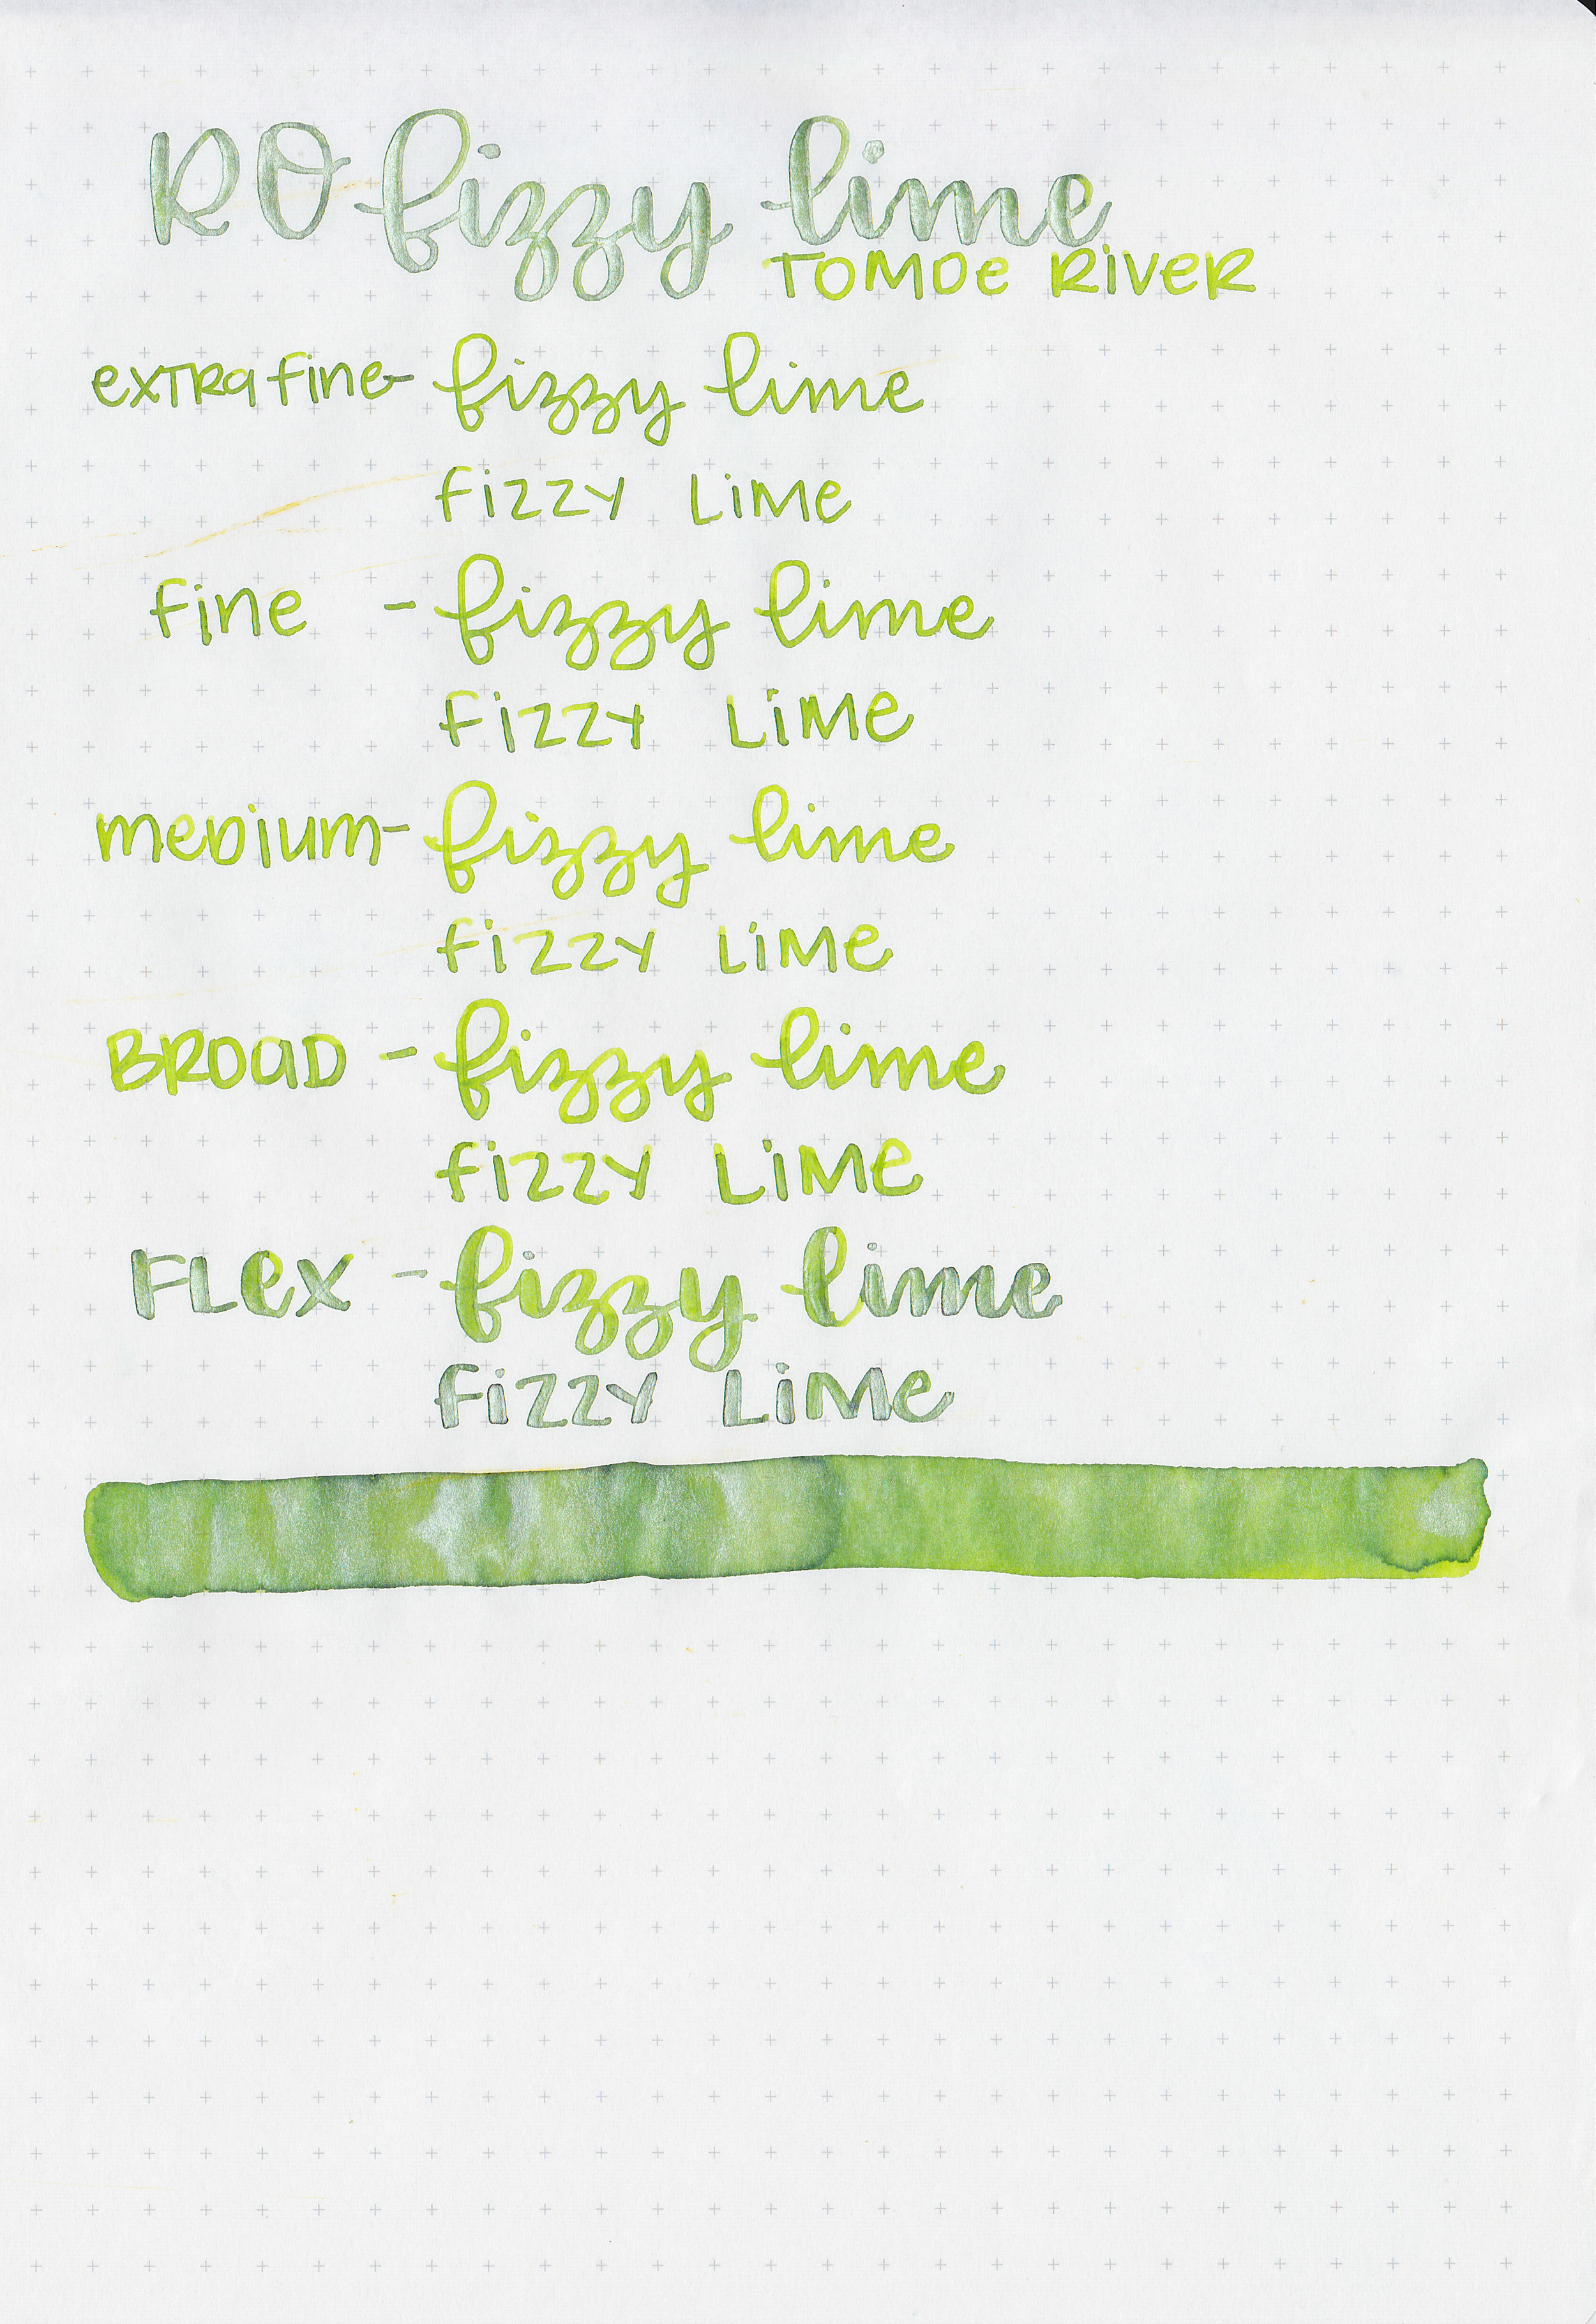 RO fizzy lime
TOMOe RiVeR
exTRa fine- fizzy lime
fizzy Lime
fine - fizzy lime
fizzy Lime
meDium- fizzy lime
fizzy Lime
BROaD - fizzy lime
fizzy Lime
FLex - fizzy lime
fizzy Lime